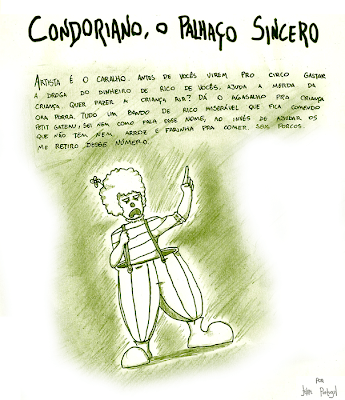 CONDORIANO, O PALHAÇO SINCERO
ARTISTA É O CARALHO. ANTES DE VOCÊS VIREM PRO CIRCO GASTAR
A DROGA DO DINHEIRO DE RICO DE VOCÊS, AJUDA A MERDA DA
CRIANÇA. QUER FAZER A CRIANÇA RIR? DÁ O AGASALHO PRA CRIANÇA
ORA PORRA. TUDO UM BANDO DE RICO MISERÁVEL QUE FICA COMENDO
PETIT GATEAU, SEI NEM COMO FALA ESSE NOME, AO INVÉS DE AJUDAR OS
QUE NÃO TEM NEM ARROZ E FARINHA PRA COMER. SEUS PORCOS.
ME RETIRO DESSE NÚMERO.
POR
Portugal